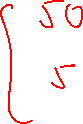 50
5